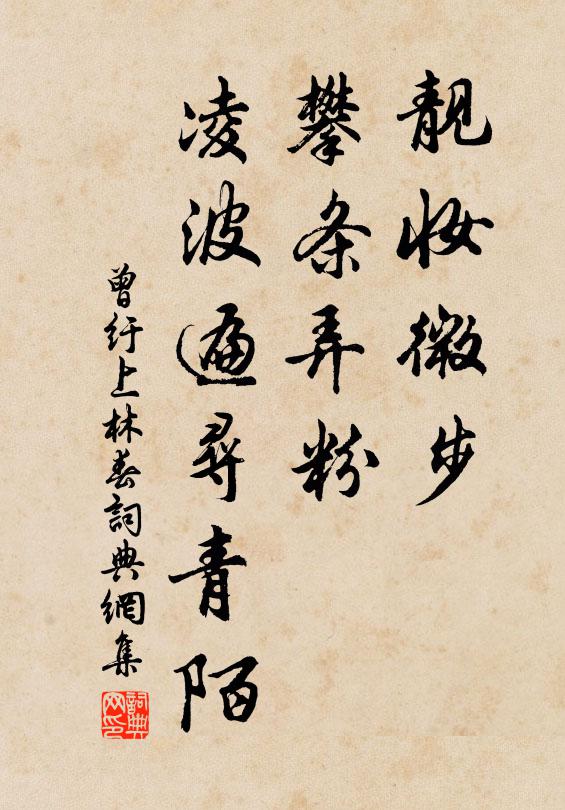 靚妝微步
攀条弄粉
凌波遍尋青陌
曾纡上林春詞典網集
詞典网印